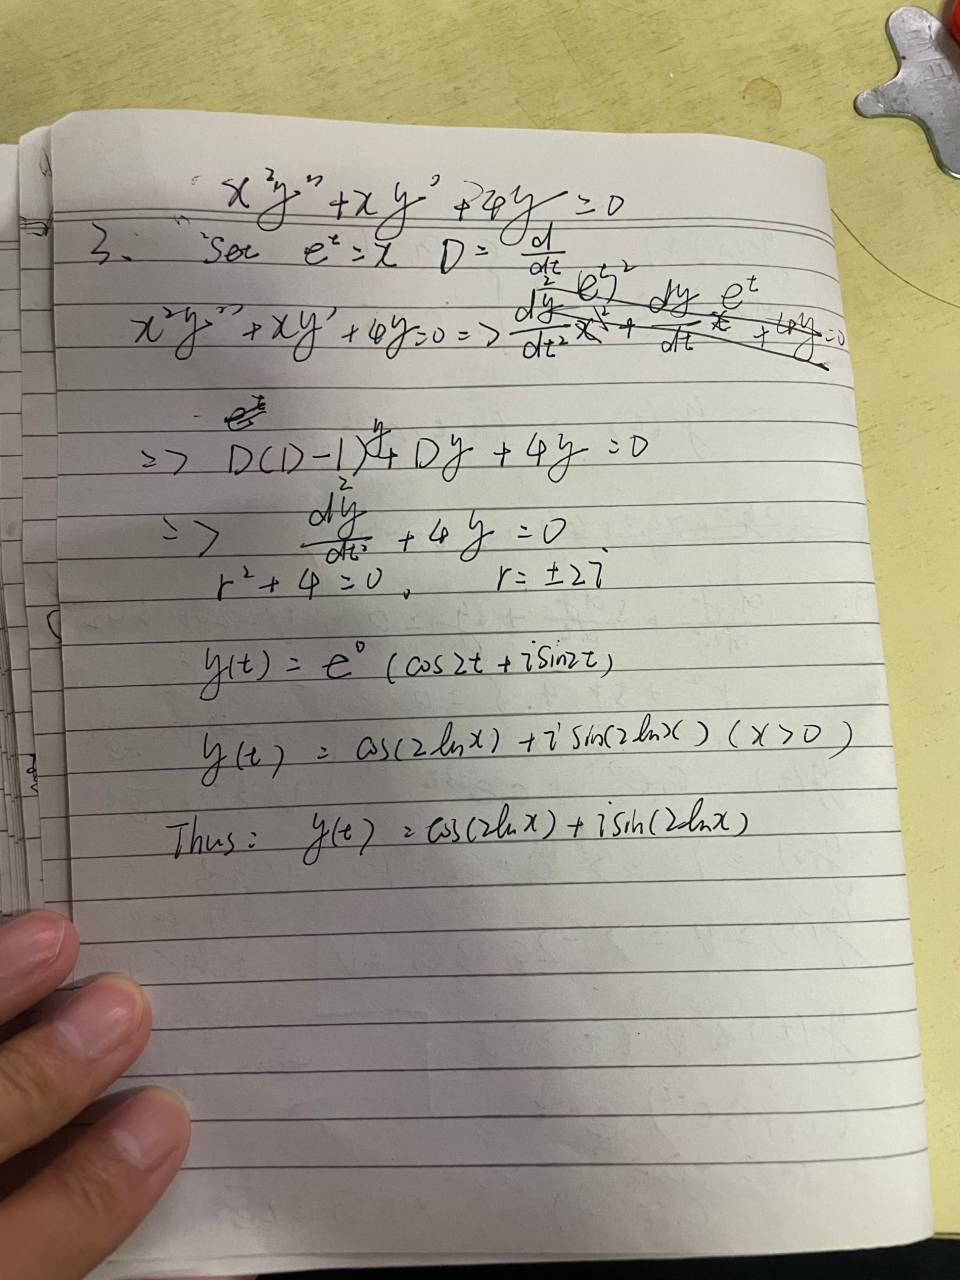 x²y'' + xy' + 4y = 0
3. Set e^t = x D = d/dt
x²y'' + xy' + 4y = 0 => d²y/dt² (e^t)² + dy/dt e^t + 4y = 0
=> D(D-1)y + Dy + 4y = 0
=> d²y/dt² + 4y = 0
r² + 4 = 0, r = ±2i
y(t) = e⁰ (cos2t + isin2t)
y(t) = cos(2lnx) + i sin(2lnx) (x>0)
Thus: y(t) = cos(2lnx) + isin(2lnx)